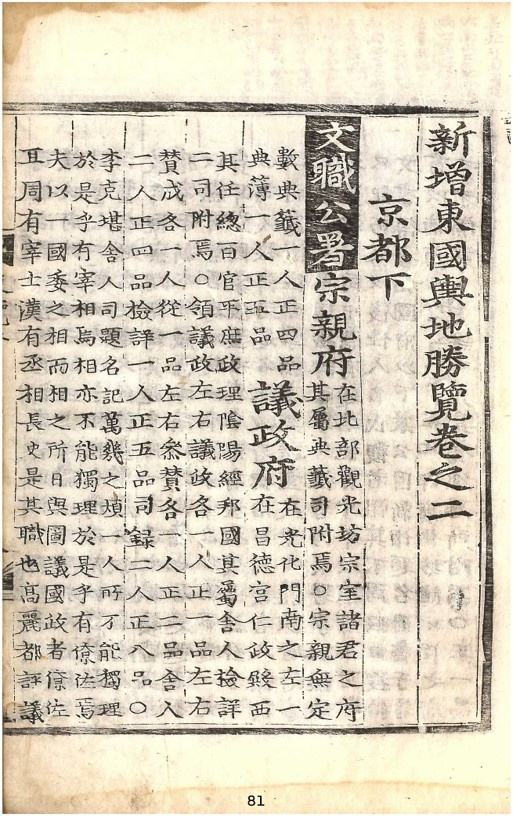 新增東國輿地勝覽卷之二
京都下
文職公署宗親府
在北部觀光坊宗室諸君之府
其屬典籤司附焉○宗親無定
數典籤一人正四品
典簿一人正五品
議政府
在光化門南之左一
在昌德宮仁政殿西
其任總百官平庶政理陰陽經邦國其屬舍人檢詳
二司附焉○領議政左右議政各一人正一品左右
贊成各一人從一品左右參贊各一人正二品舍人
二人正四品檢詳一人正五品司錄二人正八品○
李克堪舍人司題名記萬幾之煩一人所不能獨理
於是乎有宰相焉相亦不能獨理於是乎有僚佐焉
夫以一國委之相而相之所日與圖議國政者僚佐
耳周有宰士漢有丞相長史是其職也高麗都評議
81